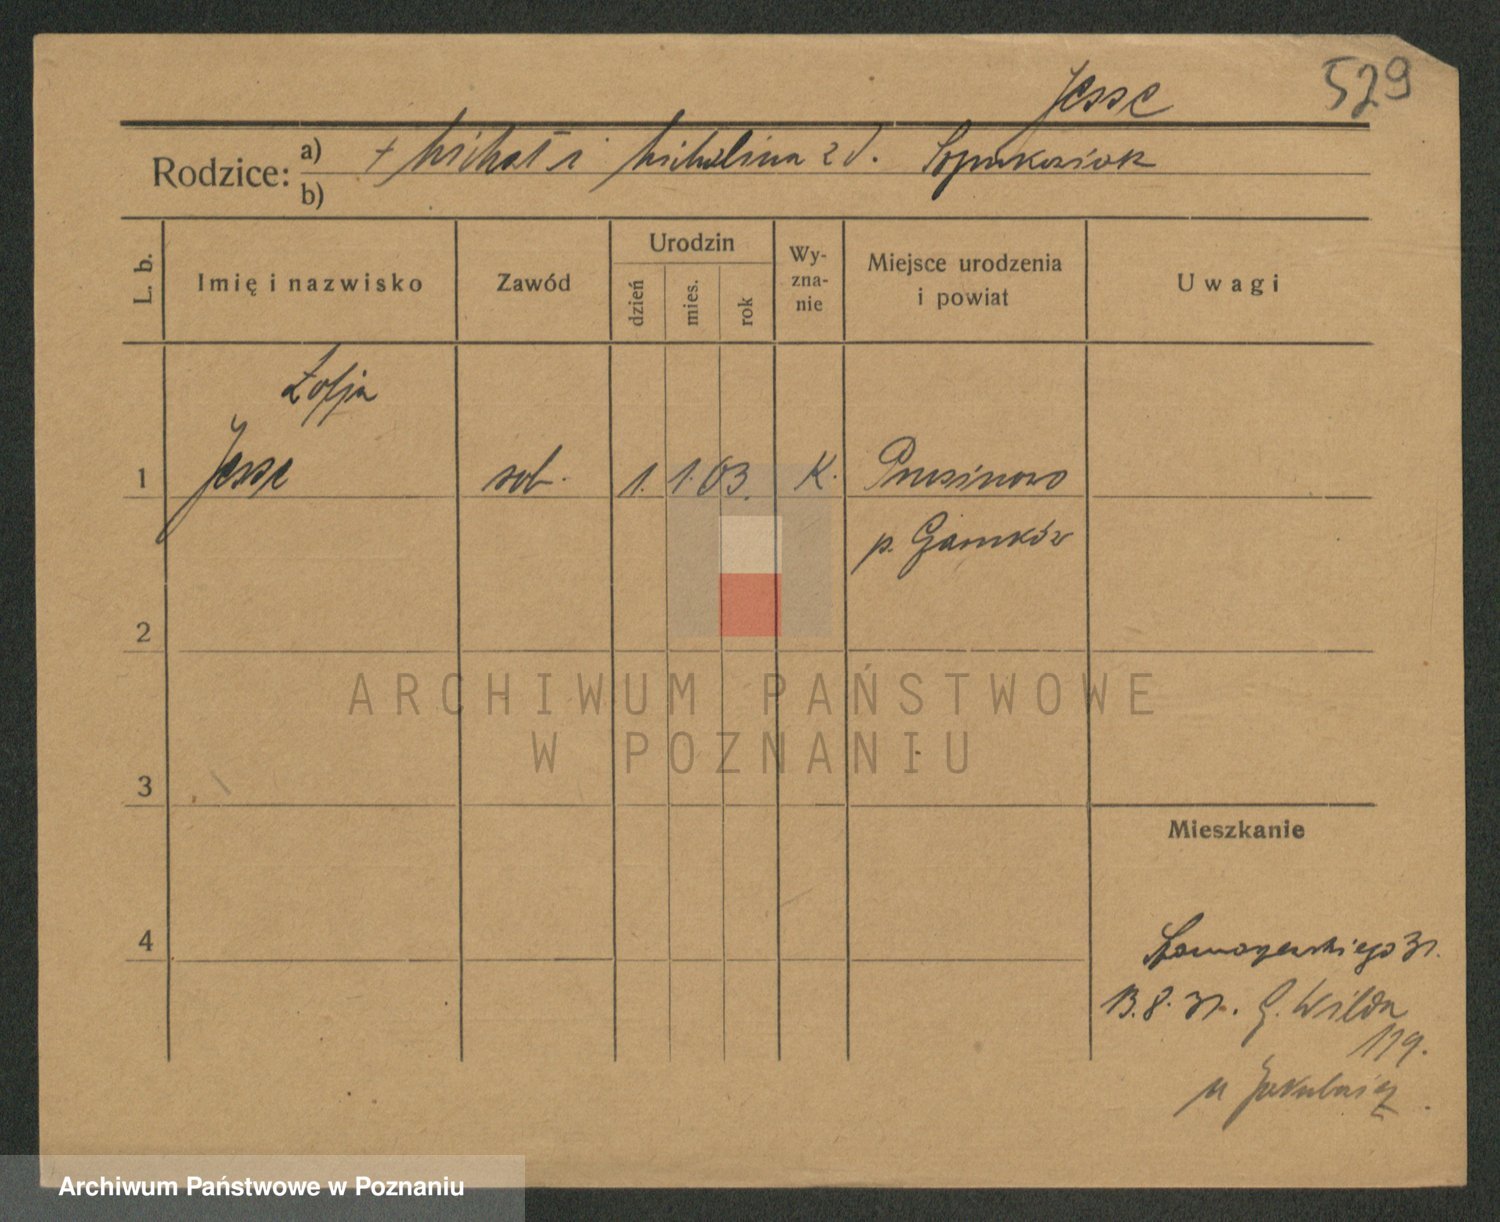 Jesse
529
Rodzice: a) + Michał i Michalina z d.
b)
L. b.
Imię i nazwisko
Zawód
Urodzin
dzień
mies.
rok
Wy-
zna-
nie
Miejsce urodzenia
i powiat
Uwagi
Zofja
1 Jesse rob. 1. 1. 03. K. Prusinowo
p.
2
3
4
Mieszkanie
31.
13.8.31. G. Wilda
119.
u
ARCHIWUM PAŃSTWOWE
W POZNANIU
Archiwum Państwowe w Poznaniu